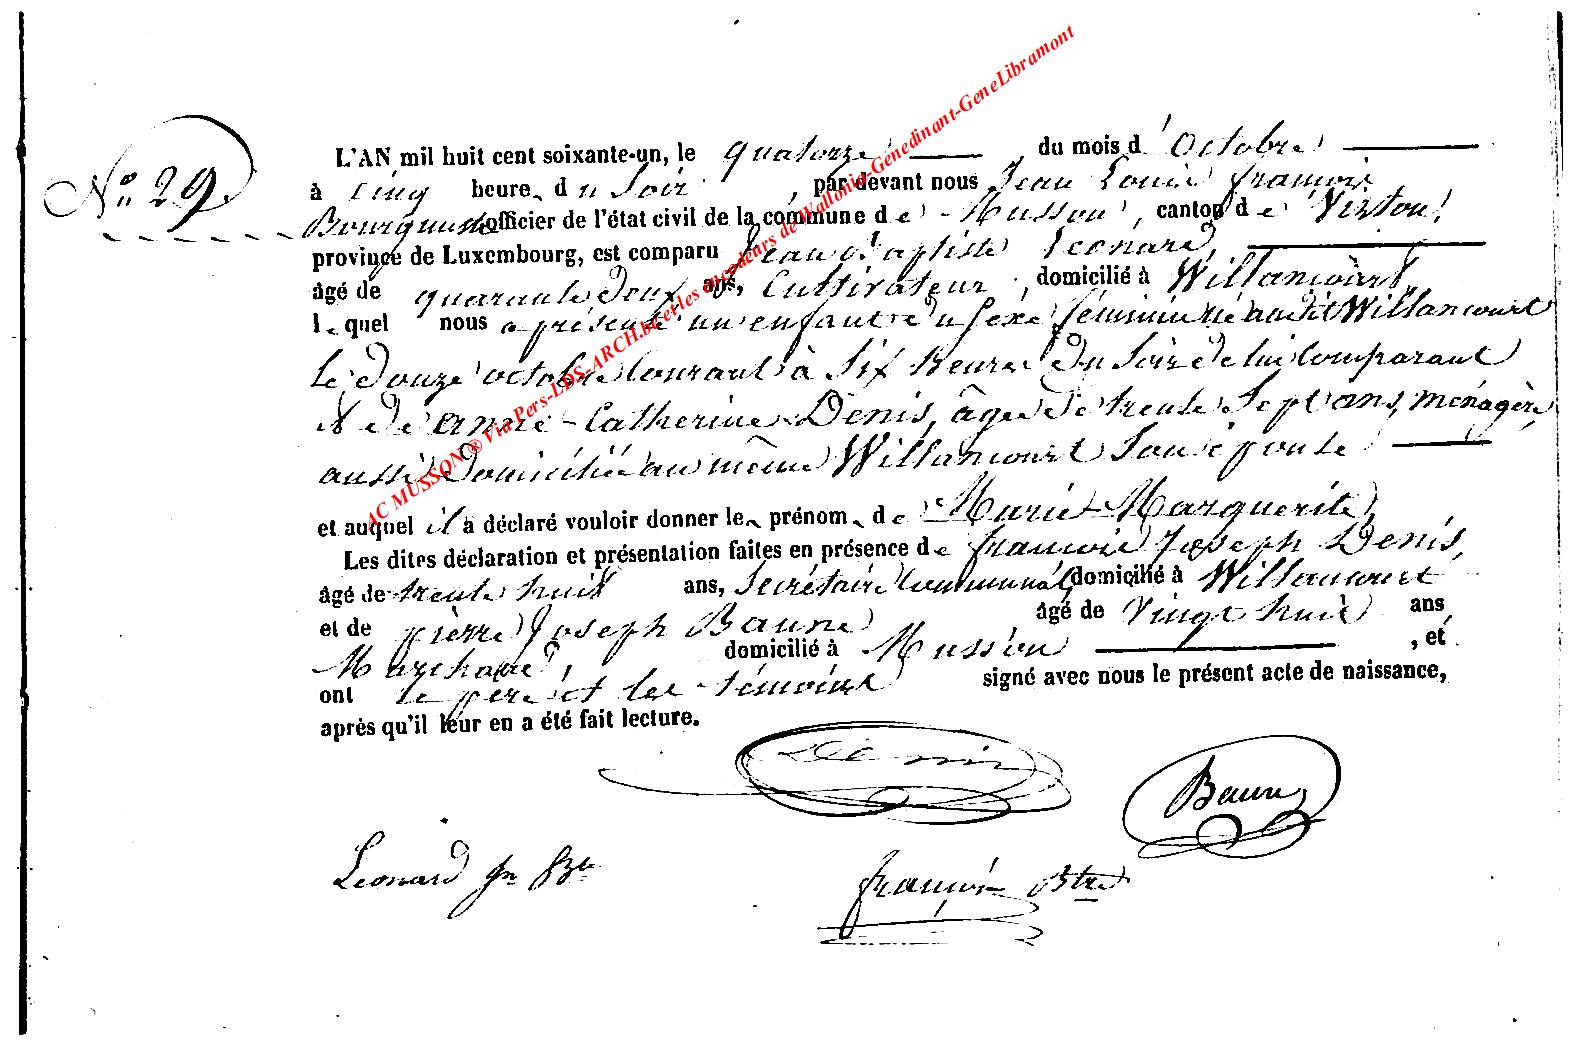 N.º 29
L'AN mil huit cent soixante-un, le quatorze du mois d'octobre
à cinq heures du soir, par devant nous Jean Louis françois
officier de l'état civil de la commune de Musson, canton de Virton,
province de Luxembourg, est comparu Jean Baptiste Léonard,
âgé de quarante deux ans, Cultivateur, domicilié à Willancourt,
lequel nous a présenté un enfant du sexe féminin né audit Willancourt
le douze octobre courant à six heures du soir de lui Comparant
et de anne-Catherine Denis, âgée de trente sept ans, ménagère,
aussi domiciliée au même Willancourt son épouse
et auquel il a déclaré vouloir donner le prénom de Marie Marguerite
Les dites déclaration et présentation faites en présence de françois Joseph Denis,
âgé de trente huit ans, Secrétaire Communal, domicilié à Willancourt
et de pierre Joseph Baune âgé de vingt huit ans
Marchand, domicilié à Musson, et
ont le père et les témoins signé avec nous le présent acte de naissance,
après qu'il leur en a été fait lecture.
Denis
Baune
Léonard Jn Bte
françois Btre
AC MUSSON ® Via Pers-LDS-ARCH.be et les encodeurs de Wallonia-Genedinant-GeneLibramont